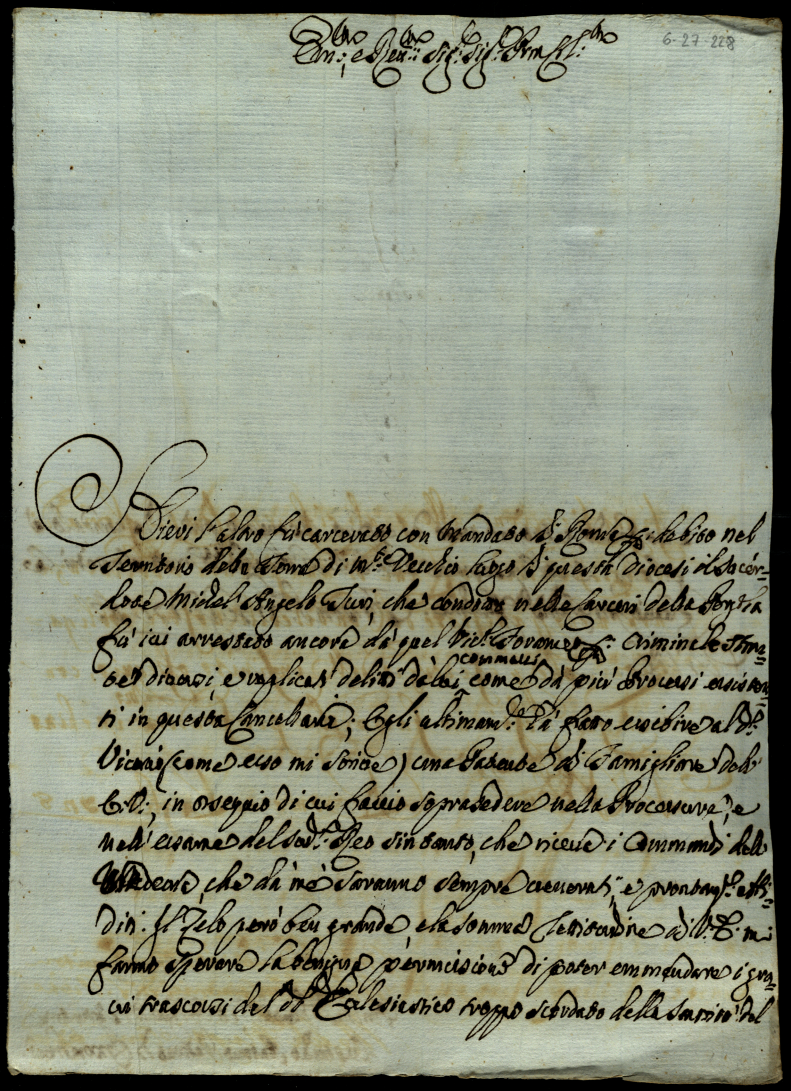 6-27-228
Em.mo e Rev.mo Sig.r Sig.r Pron Col.mo
Dievi l'altro fù carcerato con mandato di Roma habito nel
Territorio della Torre di M.te Vecchio luogo di questa Diocesi il Sacer=
dote Michel' Angelo Turi, che condotto nelle Carceri della
fù ivi arrestato ancora dà quel Vic.o Foraneo criminale
diversi e replicati delitti dà lui commessi come dà più Processi esisten=
ti in questa Cancellaria; Egli ultimam.te hà fatto esibire al d.o
Vicario (come esso mi scrive) una Patente di Famigliare dell'
E.V., in ossequio di cui faccio soprasedere nella Processura, e
nell'esame del sud.o Reo sin tanto, che riceva i Commandi dell'
che dà mè saranno sempre venerati, e prontam.te
diti. Il Zelo però ben grande e la somma Rettitudine di V.E. mi
fanno sperare la benigna permissione di poter emmendare i gra=
vi trascorsi del d.o Ecclesiastico troppo scordato della Santità del